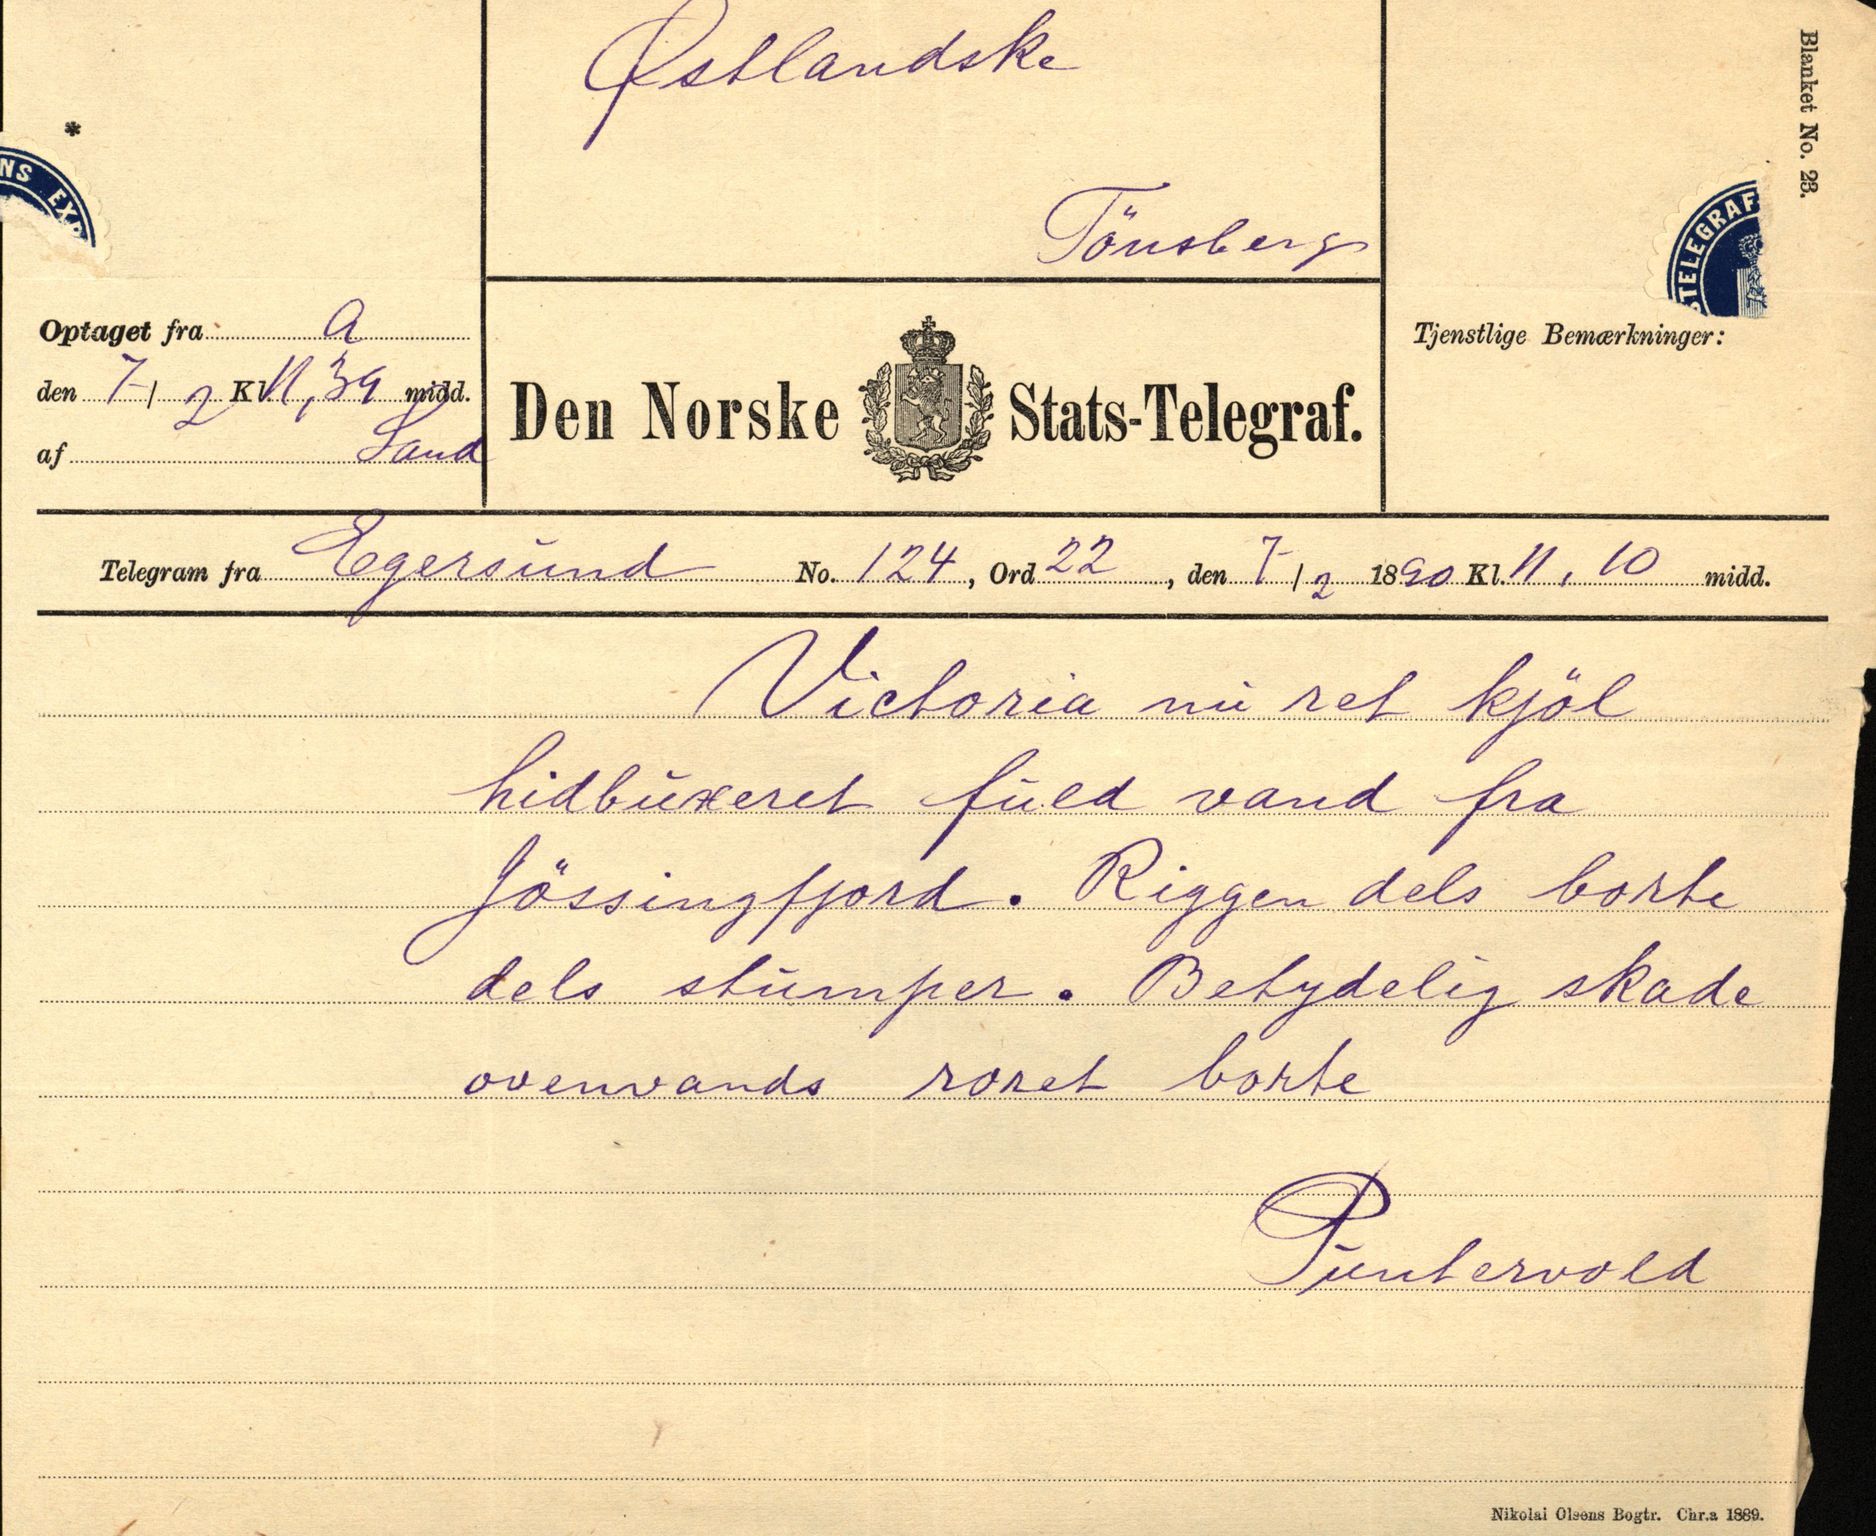 Østlandske
Tönsberg
Blanket No. 23.
*
NS EXP
TELEGRAF
Optaget fra a
den 7/2 Kl. 11,39 midd.
af Sand
Den Norske Stats-Telegraf.
Tjenstlige Bemærkninger:
Telegram fra Egersund No. 124, Ord 22, den 7/2 1890 Kl. 11.10 midd.
Victoria nu ret kjöl
hidbuxeret fuld vand fra
Jössingfjord. Riggen dels borte
dels stumper. Betydelig skade
ovenvands roret borte
Puntervold
Nikolai Olsens Bogtr. Chr.a 1889.